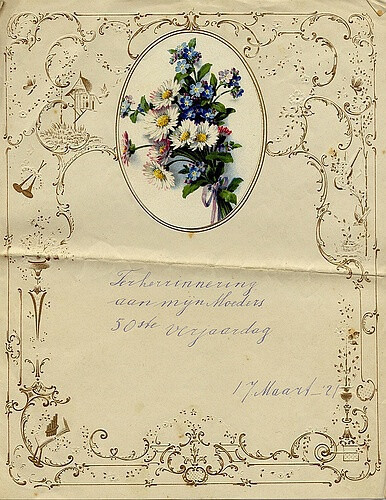 Terherrinnering
aan mijn Moeders
50ste verjaardag
17 Maart '21